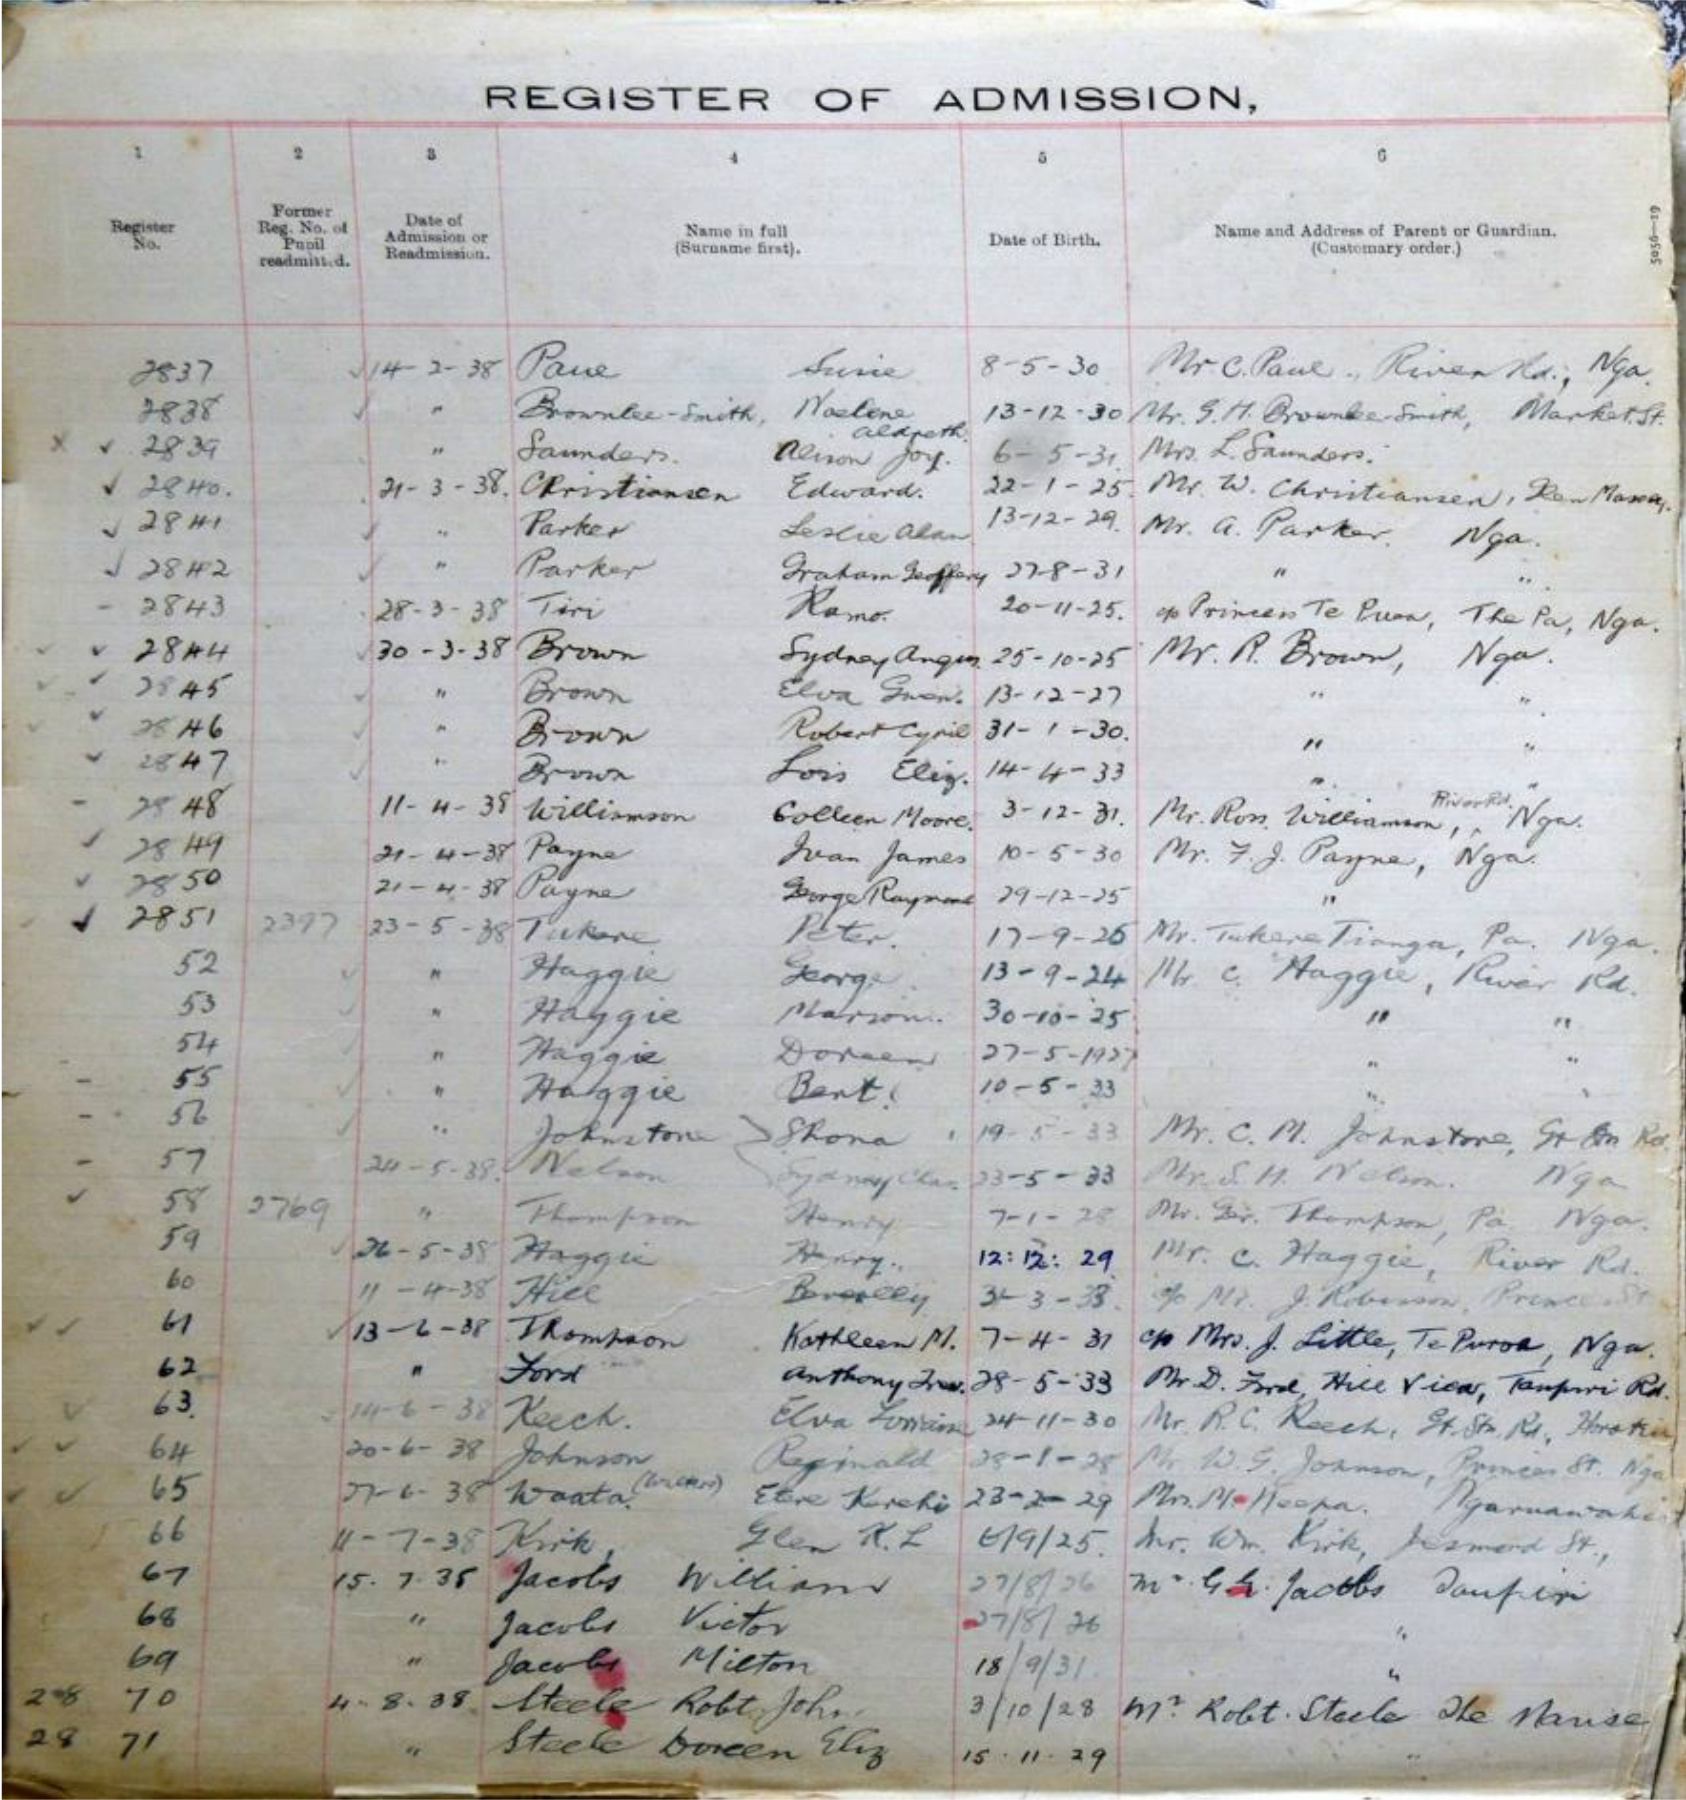 REGISTER OF ADMISSION,
1 2 3 4 5 6
Register No. Former Reg. No. of Pupil readmitted. Date of Admission or Readmission. Name in full (Surname first). Date of Birth. Name and Address of Parent or Guardian. (Customary order.)
5056—19
2837 14-2-38 Paue Susie 8-5-30 Mr C. Paul., River Rd., Nga.
2838 " Brownlee-Smith, Noelene 13-12-30 Mr. G. H. Brownlee-Smith, Market St.
2839 " Saunders. Alison Joy. 6-5-31 Mrs. L. Saunders.
2840. 21-3-38. Christiansen Edward. 22-1-25 Mr. W. Christiansen,
2841 " Parker Leslie Alan 13-12-29 Mr. A. Parker. Nga.
2842 " Parker Graham Geoffery 27-8-31 " "
2843 28-3-38 Tiri Ramo. 20-11-25. c/o Princess Te Puea, The Pa, Nga.
2844 30-3-38 Brown Sydney Angus 25-10-25 Mr. R. Brown, Nga.
2845 " Brown Elva Gwen. 13-12-27 " "
2846 " Brown Robert Cyril 31-1-30. " "
2847 " Brown Lois Eliz. 14-4-33 " "
2848 11-4-38 Williamson Colleen Moore. 3-12-31. Mr. Ross Williamson, River Rd. Nga.
2849 21-4-38 Payne Ivan James 10-5-30 Mr. F. J. Payne, Nga.
2850 21-4-38 Payne George Raymond 29-12-25 "
2851 2397 23-5-38 Tukere Peter. 17-9-26 Mr. Tukere Tianga, Pa. Nga.
52 " Haggie George 13-9-24 Mr C. Haggie, River Rd.
53 " Haggie Marion. 30-10-25 " "
54 " Haggie Doreen 27-5-1927 " "
55 " Haggie Bert. 10-5-33 " "
56 " Johnstone Shona 19-5-33 Mr. C. M. Johnstone, Rd.
57 24-5-38. Nelson Sydney Chas. 23-5-33 Mr. S. H. Nelson. Nga
58 2769 " Thompson Henry 7-1-28 Mr. Geo. Thompson, Pa. Nga.
59 26-5-38 Haggie Henry. 12:12:29 Mr. C. Haggie, River Rd.
60 11-4-38 Hill Beverley c/o Mr. J. Robinson, Princess St
61 13-6-38 Thompson Kathleen M. 7-4-31 c/o Mrs. J. Little, Te Puroa, Nga.
62 " Ford Anthony 28-5-33 Mr D. Ford, Hill View, Taupiri Rd.
63. 14-6-38 Keech. Elva Lorraine 24-11-30 Mr. R. C. Keech, Gt. Sth. Rd., Horotiu
64 20-6-38 Johnson Reginald 28-1-28 Mr. W. G. Johnson, Princess St. Nga
65 27-6-38 Waata. Etere Kerehi 23-2-29 Mrs. M. Heepa. Ngaruawahia
66 11-7-38 Kirk, Glen K. L 6/9/25. Mr. Wm. Kirk, Jesmond St.,
67 15.7.38 Jacobs William 27/8/26 Mr G. Jacobs Taupiri
68 " Jacobs Victor 27/8/26 "
69 " Jacobs Milton 18/9/31. "
28 70 4.8.38 Steele Robt. John. 3/10/28 Mr Robt. Steele The Manse
28 71 " Steele Doreen Eliz 15.11.29 "